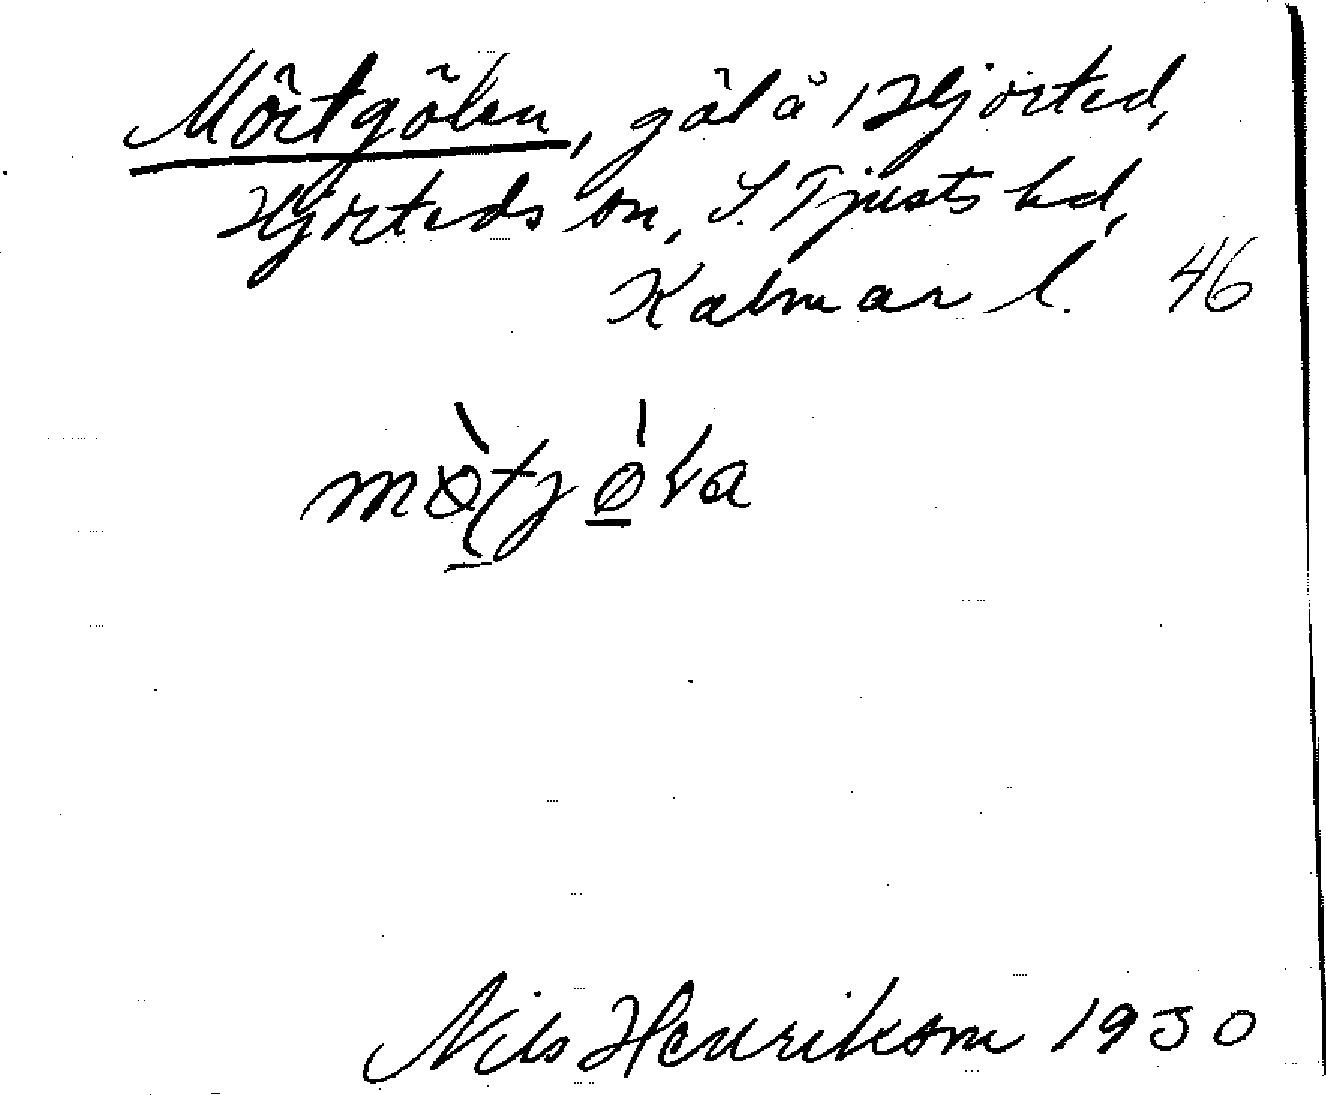 Mörtgölen, göl å 1 Hjorted,
Hjorteds sn, S. Tjusts hd,
Kalmar l. 46
Nils Henrikson 1930